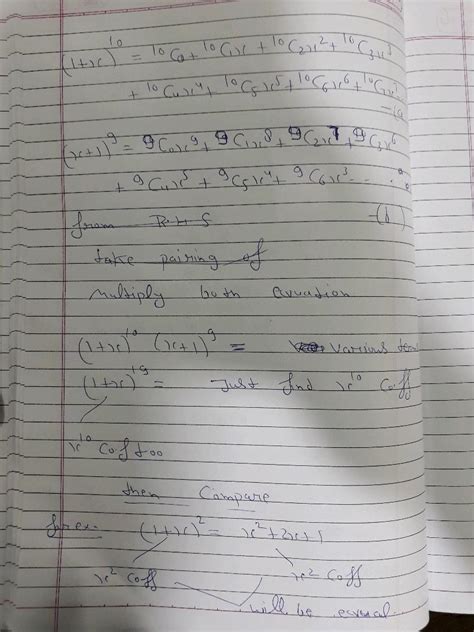 (1+x)¹⁰ = ¹⁰C₀ + ¹⁰C₁x + ¹⁰C₂x² + ¹⁰C₃x³
+ ¹⁰C₄x⁴ + ¹⁰C₅x⁵ + ¹⁰C₆x⁶ + ¹⁰C₇x⁷
—(a
(x+1)⁹ = ⁹C₀x⁹ + ⁹C₁x⁸ + ⁹C₂x⁷ + ⁹C₃x⁶
+ ⁹C₄x⁵ + ⁹C₅x⁴ + ⁹C₆x³ - - -
from R.H.S —(b
take pairing of
multiply both equation
(1+x)¹⁰ (x+1)⁹ = various
(1+x)¹⁹ = Just find x¹⁰ Coff
x¹⁰ Coff too
then Compare
for ex. (1+x)² = x²+2x+1
x² Coff x² Coff
will be equal